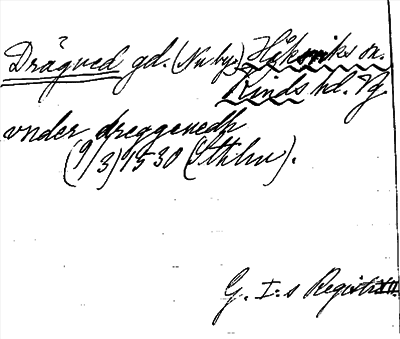 Drågved gd. (Nu by.) Håksviks sn.
Kinds hd. Vg.
vnder dreggeuedh
(9/3) 1530 (Sthlm).
G. I:s Registr. VII.